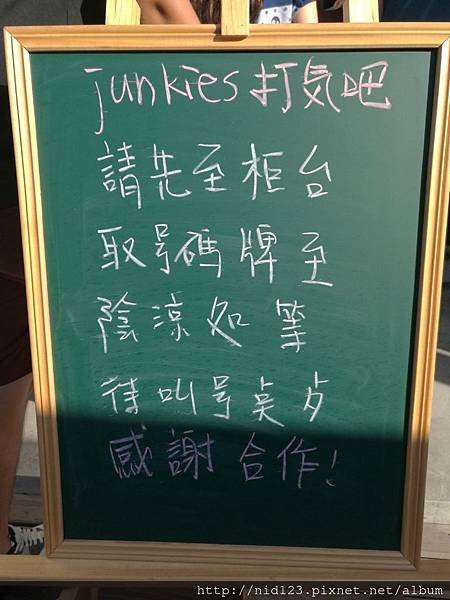 junkies打気吧
請先至柜台
取号碼牌至
陰涼処等
待叫号奌歺
感謝合作!
http://nid123.pixnet.net/album